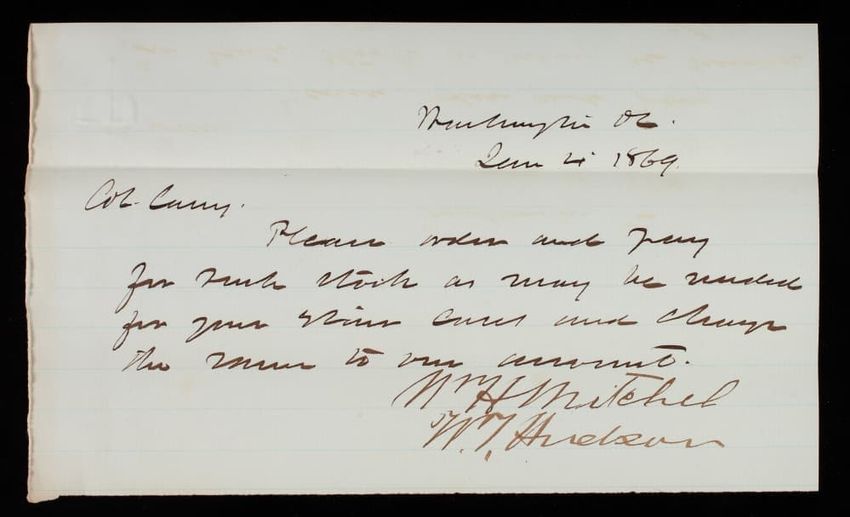 Washington DC.
Jan 4 1869.
Col. Carry.
Please order and pay
for such stock as may be needed
for your cases and charge
the same to our account.
Wm H Mitchel
W. T. Hudson